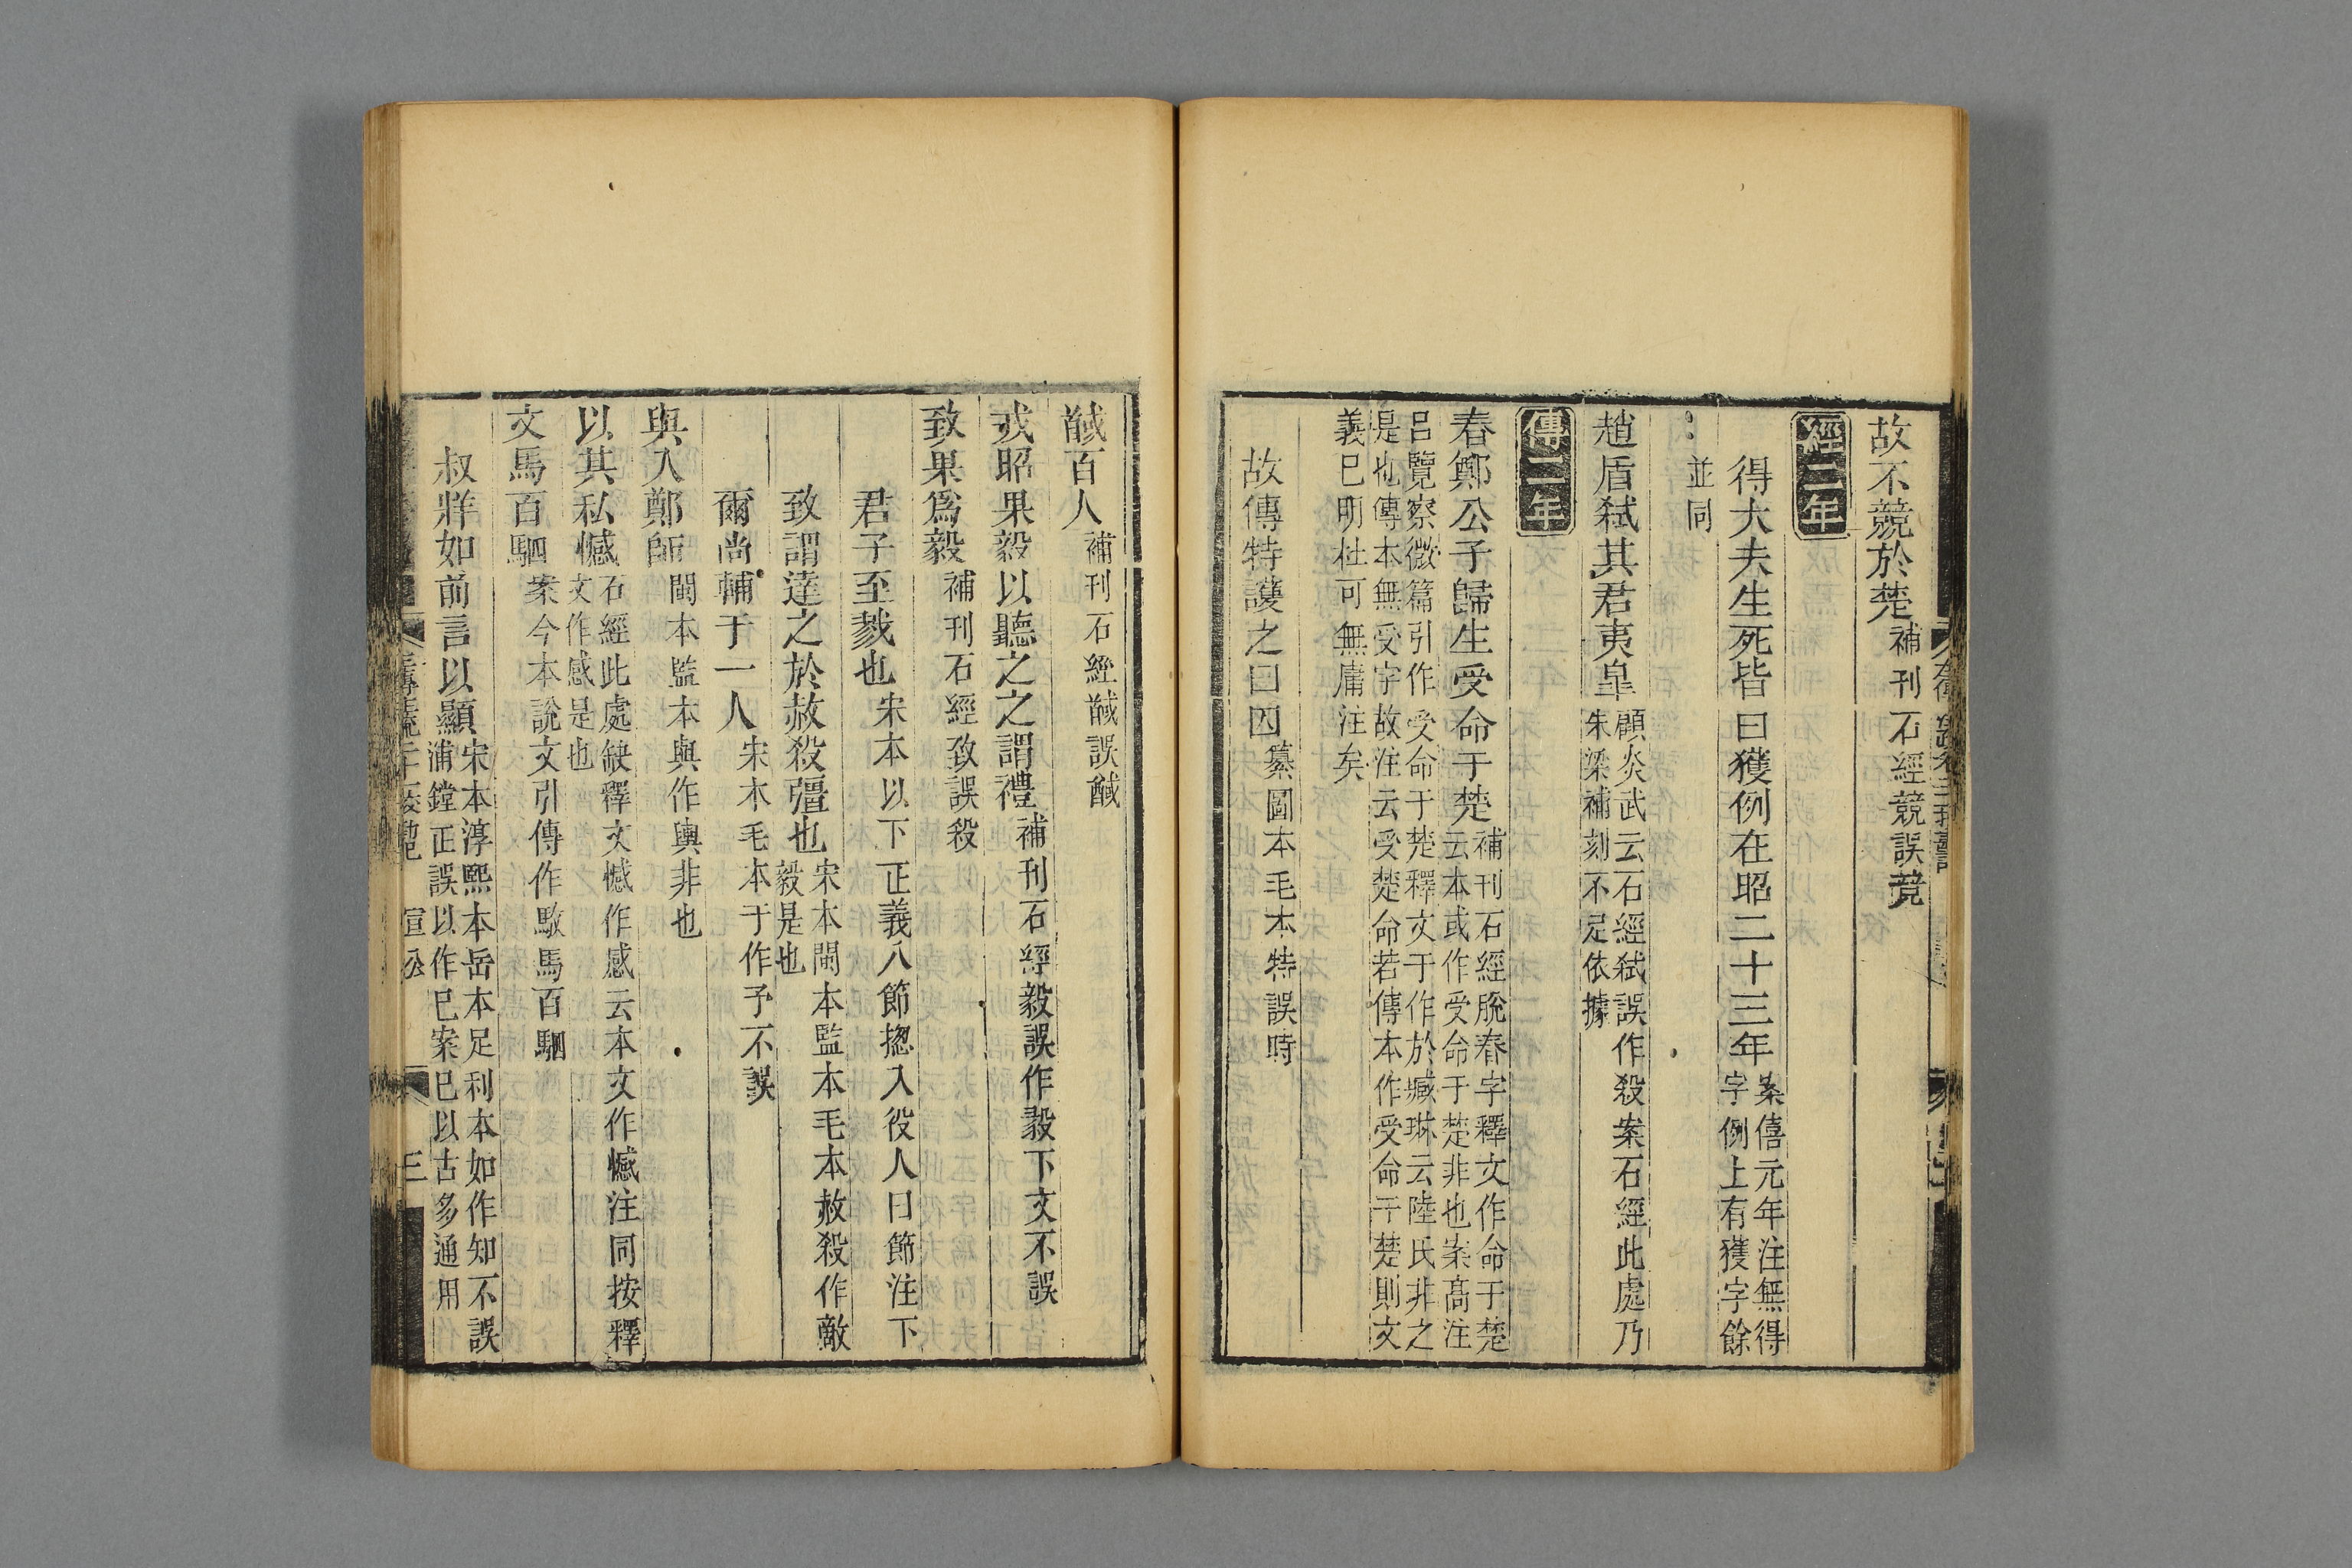 故不競於楚補刊石經競誤竟
經二年
得大夫生死皆曰獲例在昭二十三年案僖元年注無得
字例上有獲字餘
並同
趙盾弒其君夷臯顧炎武云石經弒誤作殺案石經此處乃
朱梁補刻不足依據
傳二年
春鄭公子歸生受命于楚補刊石經脫春字釋文作命于楚
云本或作受命于楚非也案高注
呂覽察微篇引作受命于楚釋文于作於臧琳云陸氏非之
是也傳本無受字故注云受楚命若傳本作受命于楚則文
義已明杜可無庸注矣
故傳特護之曰囚纂圖本毛本特誤時
馘百人補刊石經馘誤醎
戎昭果毅以聽之之謂禮補刊石經毅誤作毅下文不誤
致果爲毅補刊石經致誤殺
君子至戮也宋本以下正義八節揔入役人曰節注下
致謂達之於敵殺彊也宋本閩本監本毛本赦殺作敵
毅是也
爾尚輔于一人宋本毛本于作予不誤
與入鄭師閩本監本與作輿非也
以其私憾石經此處缺釋文憾作感云本文作憾注同按釋
文作感是也
文馬百駟案今本說文引傳作駇馬百駟
叔牂如前言以顯宋本淳熙本岳本足利本如作知不誤
浦鏜正誤以作已案已以古多通用
宣公
三